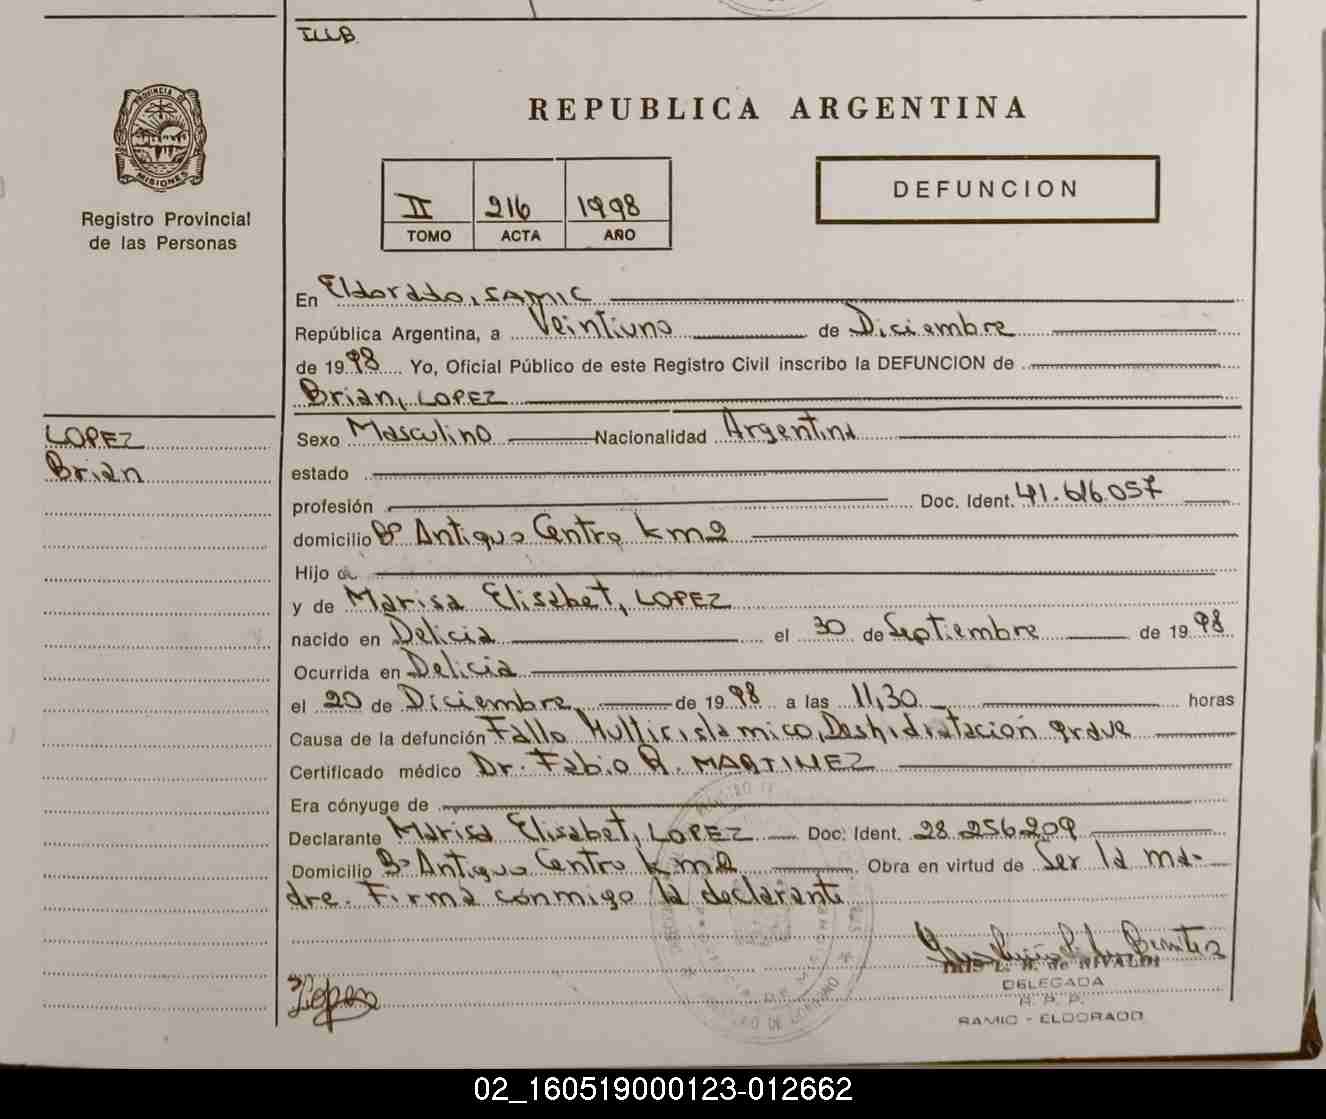 ILLB
REPUBLICA ARGENTINA
PROVINCIA DE
MISIONES
Registro Provincial
de las Personas
II 216 1998
TOMO ACTA AÑO
DEFUNCION
En Eldorado, SAMIC
República Argentina, a Veintiuno de Diciembre
de 1998 Yo, Oficial Público de este Registro Civil inscribo la DEFUNCION de
Brian, LOPEZ
LOPEZ
Brian
Sexo Masculino Nacionalidad Argentina
estado
profesión Doc. Ident. 41.616.057
domicilio Bº Antiguo Centro km 2
Hijo de
y de Marisa Elisabet, LOPEZ
nacido en Delicia el 30 de Septiembre de 1998
Ocurrida en Delicia
el 20 de Diciembre de 1998 a las 11,30 horas
Causa de la defunción Fallo Multicislamico, Deshidratación grave
Certificado médico Dr. Fabio R. MARTINEZ
Era cónyuge de
Declarante Marisa Elisabet, LOPEZ Doc. Ident. 28.256.209
Domicilio Bº Antiguo Centro km 2 Obra en virtud de Ser la ma-
dre. Firma conmigo la declarante
Lopez
DELEGADA
R. P. P.
SAMIC - ELDORADO
02_160519000123-012662